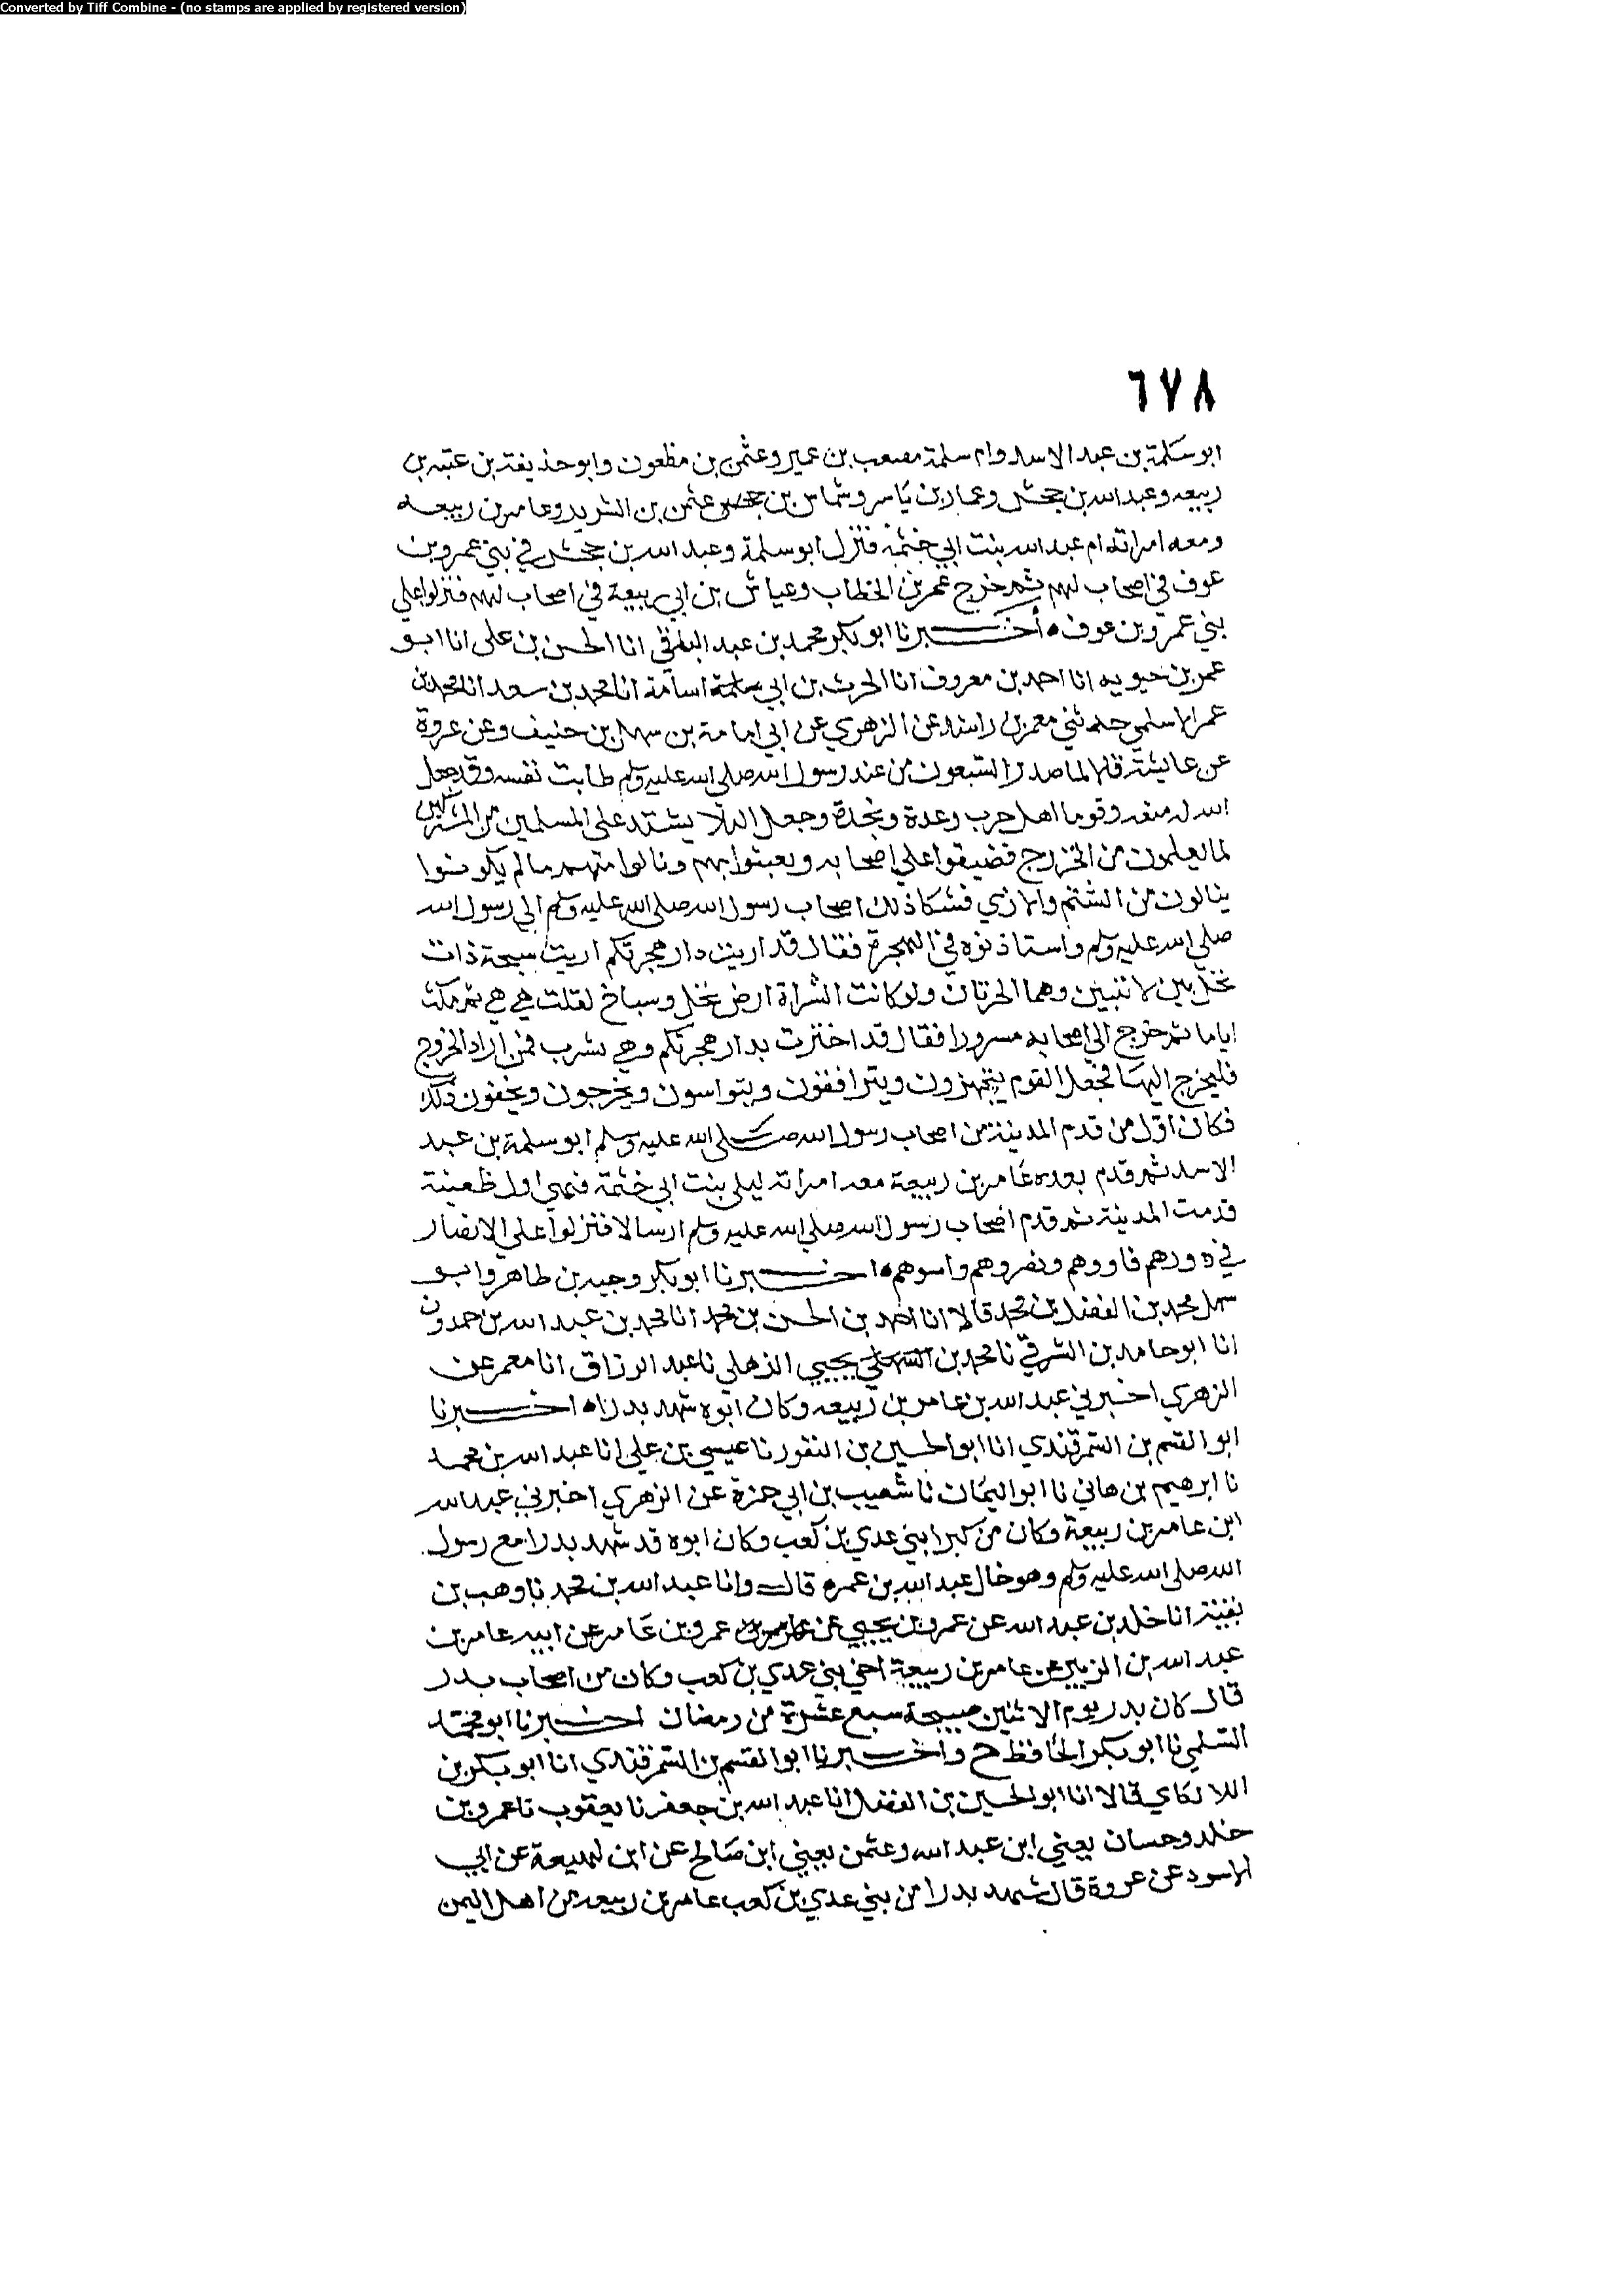 Converted by Tiff Combine - (no stamps are applied by registered version)
٦٧٨
ابو سلمة بن عبد الاسد وام سلمة مصعب بن عمير وعثمن بن مظعون وابو حذيفة بن عتبه بن
ربيعه وعبد الله بن جحش وعمار بن ياسر وشماس بن عثمن بن الشريد وعامر بن ربيعه
ومعه امراته ام عبد الله بنت ابي حثمة فنزل ابو سلمة وعبد الله بن جحش في بني عمرو بن
عوف في اصحاب لهم ثم خرج عمر بن الخطاب وعياش بن ابي ربيعة في اصحاب لهم فنزلوا علي
بني عمرو بن عوف ه أخبرنا ابو بكر محمد بن عبد الباقي انا الحسن بن علي انا ابو
عمر بن حيويه انا احمد بن معروف انا الحرث بن ابي اسامة انا محمد بن سعد انا محمد بن
عمر الاسلمي حدثني معمر بن راشد عن الزهري عن ابي امامة بن سهل بن حنيف وعن عروة
عن عايشة قالا لما صدر السبعون من عند رسول الله صلي الله عليه وسلم طابت نفسه وقد جعل
الله له منعه وقوما اهل حرب وعدة ونجدة وجعل البلا يشتد علي المسلمين من المشركين
لما يعلمون من الخزرج فضيقوا علي اصحابه وتعبثوا بهم ونالوا منهم ما لم يكونوا
ينالون من الشتم والاذي فشكا ذلك اصحاب رسول الله صلي الله عليه وسلم الي رسول الله
صلي الله عليه وسلم واستاذنوه في الهجرة فقال قد اريت دار هجرتكم اريت سبخة ذات
نخل بين لابتين وهما الحرتان ولو كانت الشراة ارض نخل وسباخ لقلت هي هي ثم مكث
اياما ثم خرج الي اصحابه مسرورا فقال قد اخترت بدار هجرتكم وهي يثرب فمن اراد الخروج
فليخرج اليها فجعل القوم يتجهزون ويترافقون ويتواسون ويخرجون ويخفون ذلك
فكان اول من قدم المدينة من اصحاب رسول الله صلي الله عليه وسلم ابو سلمة بن عبد
الاسد ثم قدم بعده عامر بن ربيعة معه امراته ليلي بنت ابي حثمة فهي اول ظعينة
قدمت المدينة ثم قدم اصحاب رسول الله صلي الله عليه وسلم ارسالا فنزلوا علي الانصار
في دورهم فاووهم ونصروهم واسوهم ه اخبرنا ابو بكر وجيه بن طاهر وابو
سهل محمد بن الفضل بن محمد قالا انا احمد بن الحسن بن محمد انا محمد بن عبد الله بن حمدون
انا ابو حامد بن الشرقي نا محمد بن يحيي الذهلي نا عبد الرزاق انا معمر عن
الزهري اخبرني عبد الله بن عامر بن ربيعه وكان ابوه شهد بدرا ه اخبرنا
ابو القسم بن السمرقندي انا ابو الحسين بن النقور نا عيسي بن علي انا عبد الله بن محمد
نا ابرهيم بن هاني نا ابو اليمان نا شعيب بن ابي حمزة عن الزهري اخبرني عبد الله
ابن عامر بن ربيعة وكان من كبرا بني عدي بن كعب وكان ابوه قد شهد بدرا مع رسول
الله صلي الله عليه وسلم وهو خال عبد الله بن عمره قال وانا عبد الله بن محمد نا وهب بن
بقية انا خلد بن عبد الله عن عمرو بن يحيي عن عمرو بن عامر عن ابيه عامر بن
عبد الله بن الزبير عن عامر بن ربيعة اخي بني عدي بن كعب وكان من اصحاب بدر
قال كان بدر يوم الاثنين صبيحة سبع عشرة من رمضان اخبرنا ابو محمد
السلمي نا ابو بكر الحافظ ح واخبرنا ابو القسم بن السمرقندي انا ابو بكر بن
اللالكاي قالا انا ابو الحسين بن الفضل انا عبد الله بن جعفر نا يعقوب نا عمرو بن
خلد وحسان يعني ابن عبد الله وعثمن يعني ابن صالح عن ابن لهيعة عن ابي
الاسود عن عروة قال شهد بدرا من بني عدي بن كعب عامر بن ربيعه من اهل اليمن